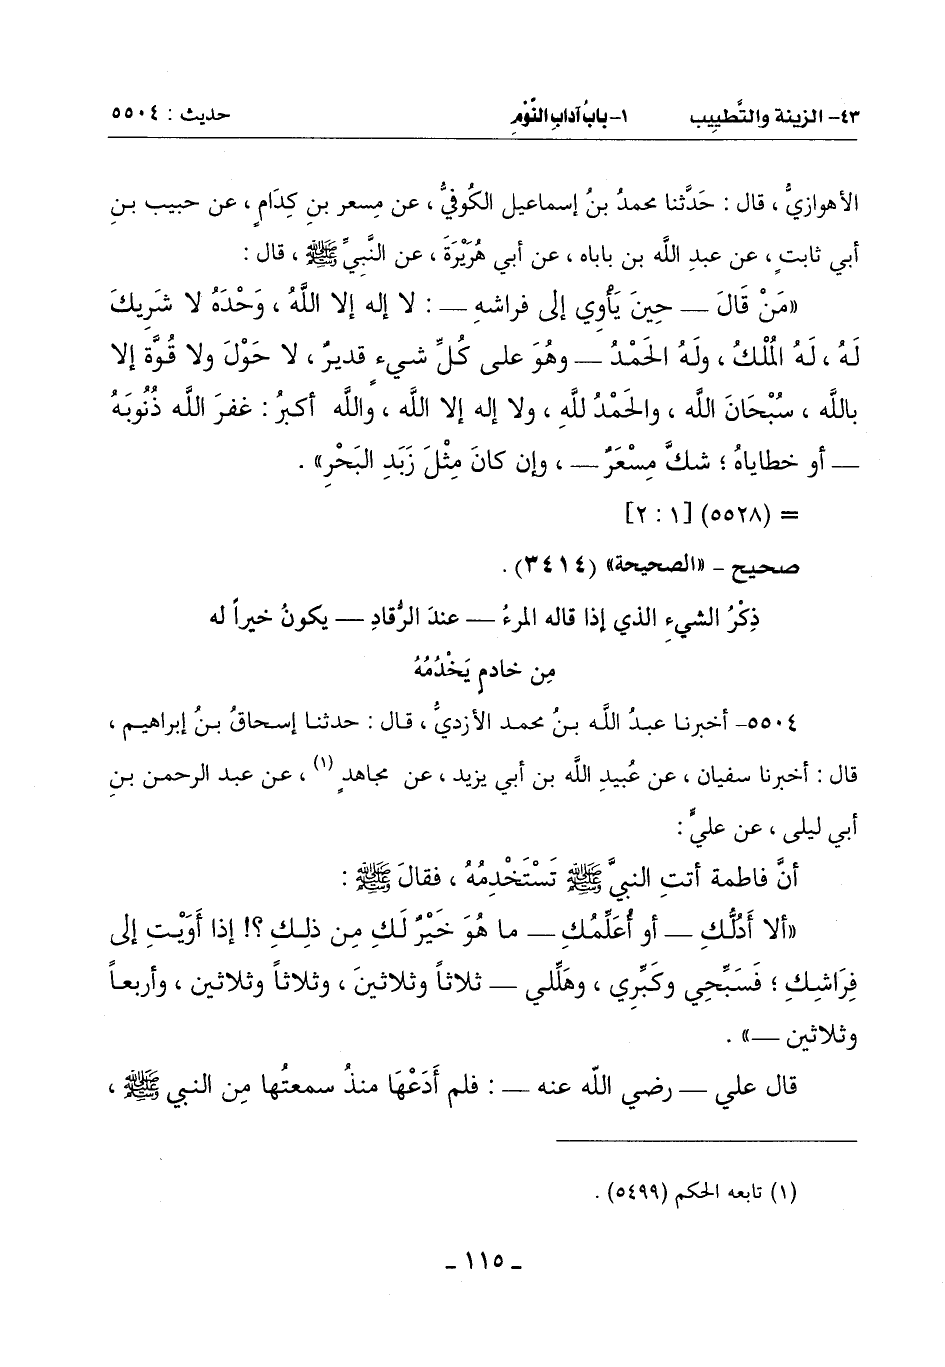 ٤٣- الزينة والتَّطييب ١- بابُ آداب النَّوْمِ حديث : ٥٥٠٤
الأهوازيُّ ، قال : حَدَّثنا محمدُ بنُ إسماعيل الكُوفيُّ ، عن مِسعر بنِ كِدَامٍ ، عن حبيب بنِ
أبي ثابتٍ ، عن عبدِ اللَّه بن باباه ، عن أبي هُرَيْرَةَ ، عن النَّبيِّ ﷺ ، قال :
«مَنْ قَالَ — حِينَ يَأْوِي إلى فراشه — : لا إله إلا اللَّهُ ، وَحْدَهُ لا شَرِيكَ
لَهُ ، لَهُ المُلْكُ ، ولَهُ الحَمْدُ — وهُوَ على كُلِّ شيءٍ قديرٌ ، لا حَوْلَ ولا قُوَّة إلا
باللَّه ، سُبْحَانَ اللَّه ، والحَمْدُ للَّهِ ، ولا إله إلا اللَّه ، واللَّه أكبرُ : غفرَ اللَّه ذُنُوبَهُ
— أو خطاياهُ ؛ شكَّ مِسْعَرٌ — ، وإن كانَ مِثْلَ زَبَدِ البَحْرِ» .
= (٥٥٢٨) [١ : ٢]
صحيح - «الصحيحة» (٣٤١٤) .
ذِكْرُ الشيءِ الذي إذا قاله المرءُ — عندَ الرُّقادِ — يكونُ خيراً له
مِن خادمٍ يَخْدُمُهُ
٥٥٠٤- أخبرنا عبدُ اللَّه بنُ محمد الأزديُّ ، قال : حدثنا إسحاقُ بنُ إبراهيم ،
قال : أخبرنا سفيان ، عن عُبيدِ اللَّه بن أبي يزيد ، عن مجاهدٍ (١) ، عن عبد الرحمن بنِ
أبي ليلى ، عن عليٍّ :
أنَّ فاطمة أتتِ النبيَّ ﷺ تَسْتَخْدِمُهُ ، فقالَ ﷺ :
«ألا أَدُلُّكِ — أو أُعَلِّمُكِ — ما هُوَ خَيْرٌ لَكِ مِن ذلِكِ ؟! إذا أَوَيْتِ إلى
فِرَاشِكِ ؛ فَسَبِّحِي وكَبِّرِي ، وهَلِّلي — ثلاثاً وثلاثينَ ، وثلاثاً وثلاثين ، وأربعاً
وثلاثين —» .
قال علي — رضي اللَّه عنه — : فلم أَدَعْهَا منذُ سمعتُها مِن النبي ﷺ ،
(١) تابعه الحكم (٥٤٩٩) .
- ١١٥ -